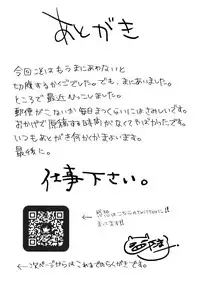 あとがき
今回ことはもうまにあわないと
切腹するかくごでした。でも、まにあいました。
ところで最近ひっこしました。
郵便がこないお毎日まっくらいにはさみしいです。
おかげで原稿する時間がなくてやばかったです。
いつもあとがき何かくかまよいます。
最後に。
仕事下さい。
←感想はこちらのTwitterに!!
まってます!!
←次ページからはこれまでのらくがきです。